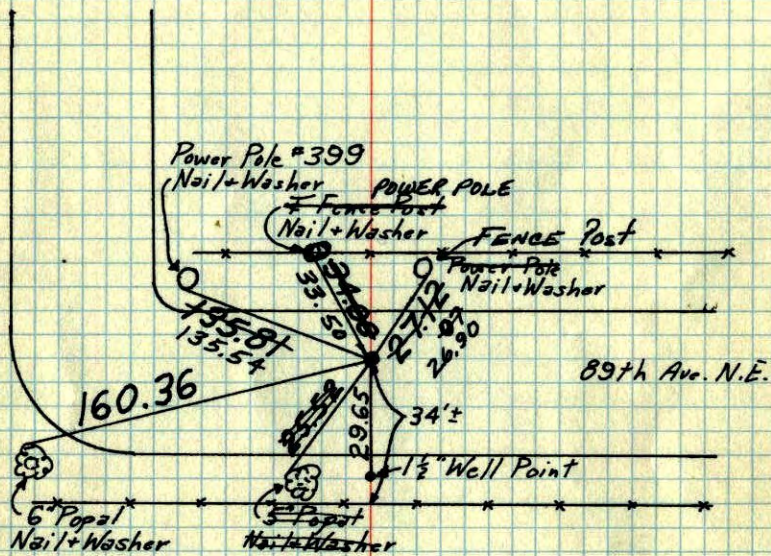 Power Pole #399
Nail+Washer
POWER POLE
Fence Post
Nail+Washer
FENCE Post
Power Pole
Nail+Washer
135.81
135.54
34.00
33.50
27.12
.07
26.90
89th Ave. N.E.
160.36
25.52
29.65
34'±
1½" Well Point
6" Popal
Nail+Washer
5" Popal
Nail+Washer